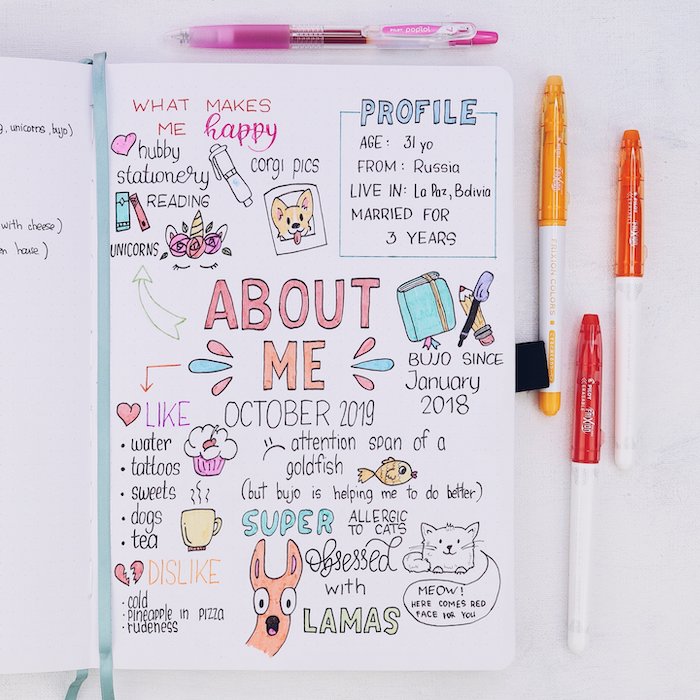 , unicorns, bujo)
with cheese)
house)
WHAT MAKES
ME happy
hubby
stationery
READING
UNICORNS
corgi pics
PROFILE
AGE: 31 yo
FROM: Russia
LIVE IN: La Paz, Bolivia
MARRIED FOR
3 YEARS
ABOUT
ME
BUJO SINCE
January
2018
LIKE
• water
• tattoos
• sweets
• dogs
• tea
DISLIKE
• cold
• pineapple in pizza
• rudeness
OCTOBER 2019
attention span of a
goldfish
(but bujo is helping me to do better)
SUPER ALLERGIC
TO CATS
obsessed
with
LAMAS
MEOW!
HERE COMES RED
FACE FOR YOU
PILOT
FRIXION COLORS
PILOT